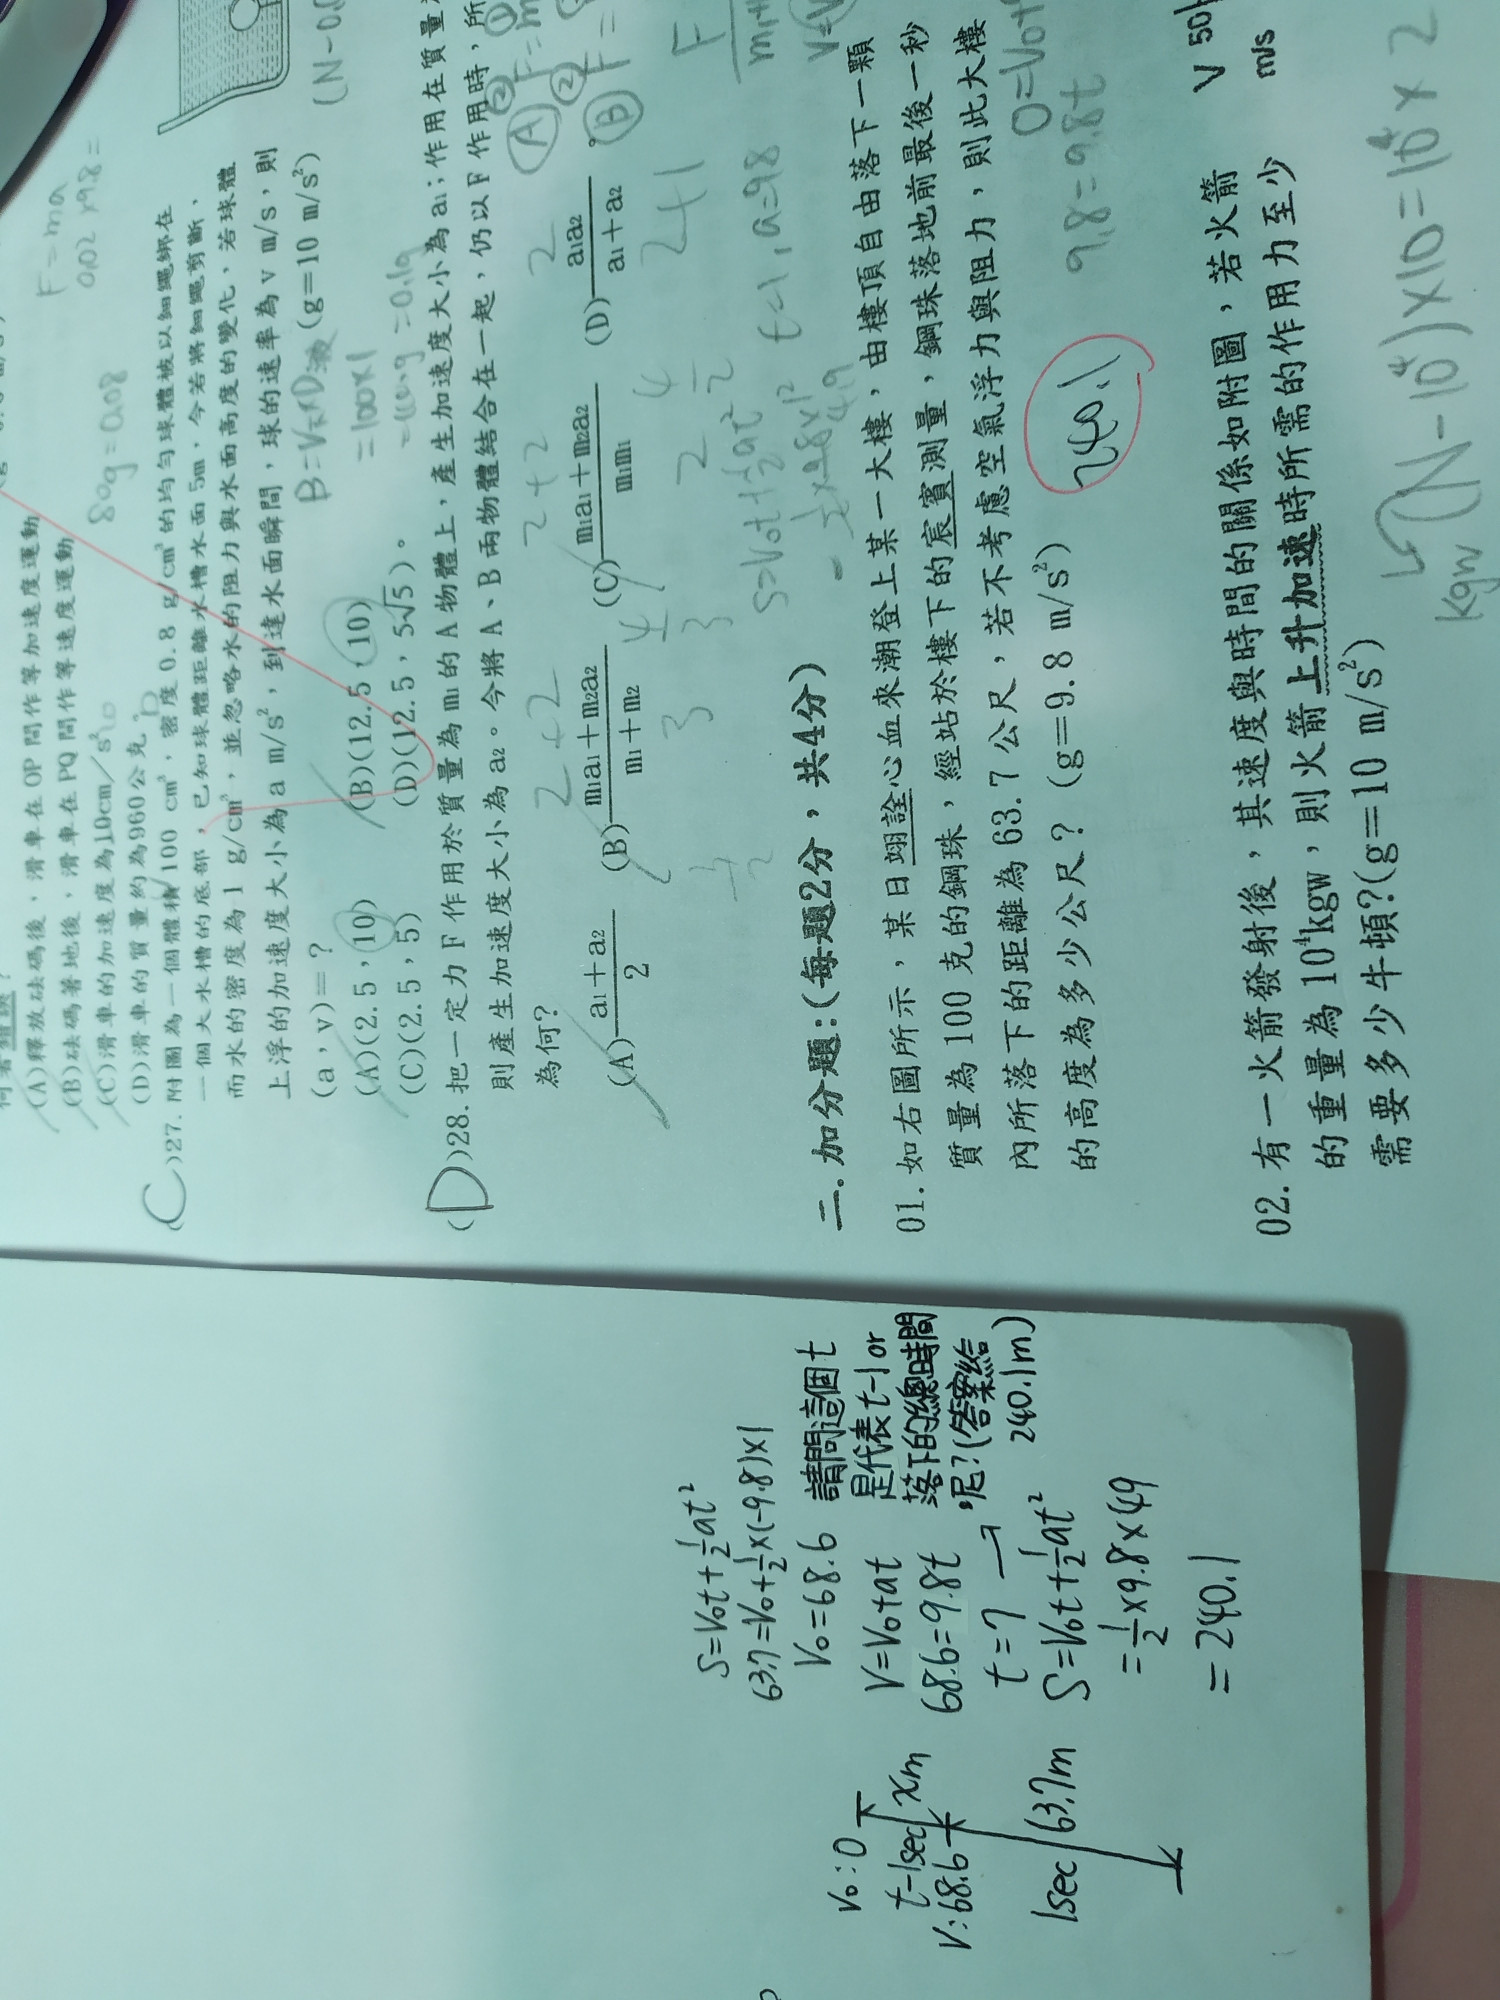 (A)釋放砝碼後，滑車在OP間作等加速度運動
(B)砝碼著地後，滑車在PQ間作等速度運動
(C)滑車的加速度為10cm/s²
(D)滑車的質量約為960公克。
F=ma
0.02×9.8=
80g=0.08
(C)27. 附圖為一個體積100 cm³，密度0.8 g/cm³的均勻球體被以細繩綁在
一個大水槽的底部，已知球體距離水槽水面5m，今若將細繩剪斷，
而水的密度為1 g/cm³，並忽略水的阻力與水面高度的變化，若球體
上浮的加速度大小為a m/s²，到達水面瞬間，球的速率為v m/s，則
(a，v)=？ (g=10 m/s²)
(A)(2.5，10) (B)(12.5，10)
(C)(2.5，5) (D)(12.5，5√5)。
=100×1
(D)28. 把一定力F作用於質量為m₁的A物體上，產生加速度大小為a₁；作用在質量
則產生加速度大小為a₂。今將A、B兩物體結合在一起，仍以F作用時，所
為何?
(A) a₁+a₂/2 (B) m₁a₁+m₂a₂/m₁+m₂ (C) m₁a₁+m₂a₂/m₁m₁ (D) a₁a₂/a₁+a₂。
2+2
2+2
2+1
t=1，a=9.8
S=V₀t+½at²
二.加分題:(每題2分，共4分)
01. 如右圖所示，某日翊詮心血來潮登上某一大樓，由樓頂自由落下一顆
質量為100克的鋼珠，經站於樓下的宸賓測量，鋼珠落地前最後一秒
內所落下的距離為63.7公尺，若不考慮空氣浮力與阻力，則此大樓
的高度為多少公尺？ (g=9.8 m/s²)
240.1
9.8=9.8t
02. 有一火箭發射後，其速度與時間的關係如附圖，若火箭
的重量為10⁴kgw，則火箭上升加速時所需的作用力至少
需要多少牛頓?(g=10 m/s²)
V 50
m/s
kgw (N-10⁴)×10=10⁴×2
S=V₀t+½at²
63.7=V₀+½×(-9.8)×1
V₀=68.6
V=V₀+at
68.6=9.8t
t=7
S=V₀t+½at²
=½×9.8×49
=240.1
請問這個t
是代表t-1or
落下的總時間
呢?(答案給
240.1m)
V₀:0
t-1sec
xm
V:68.6
1sec
63.7m